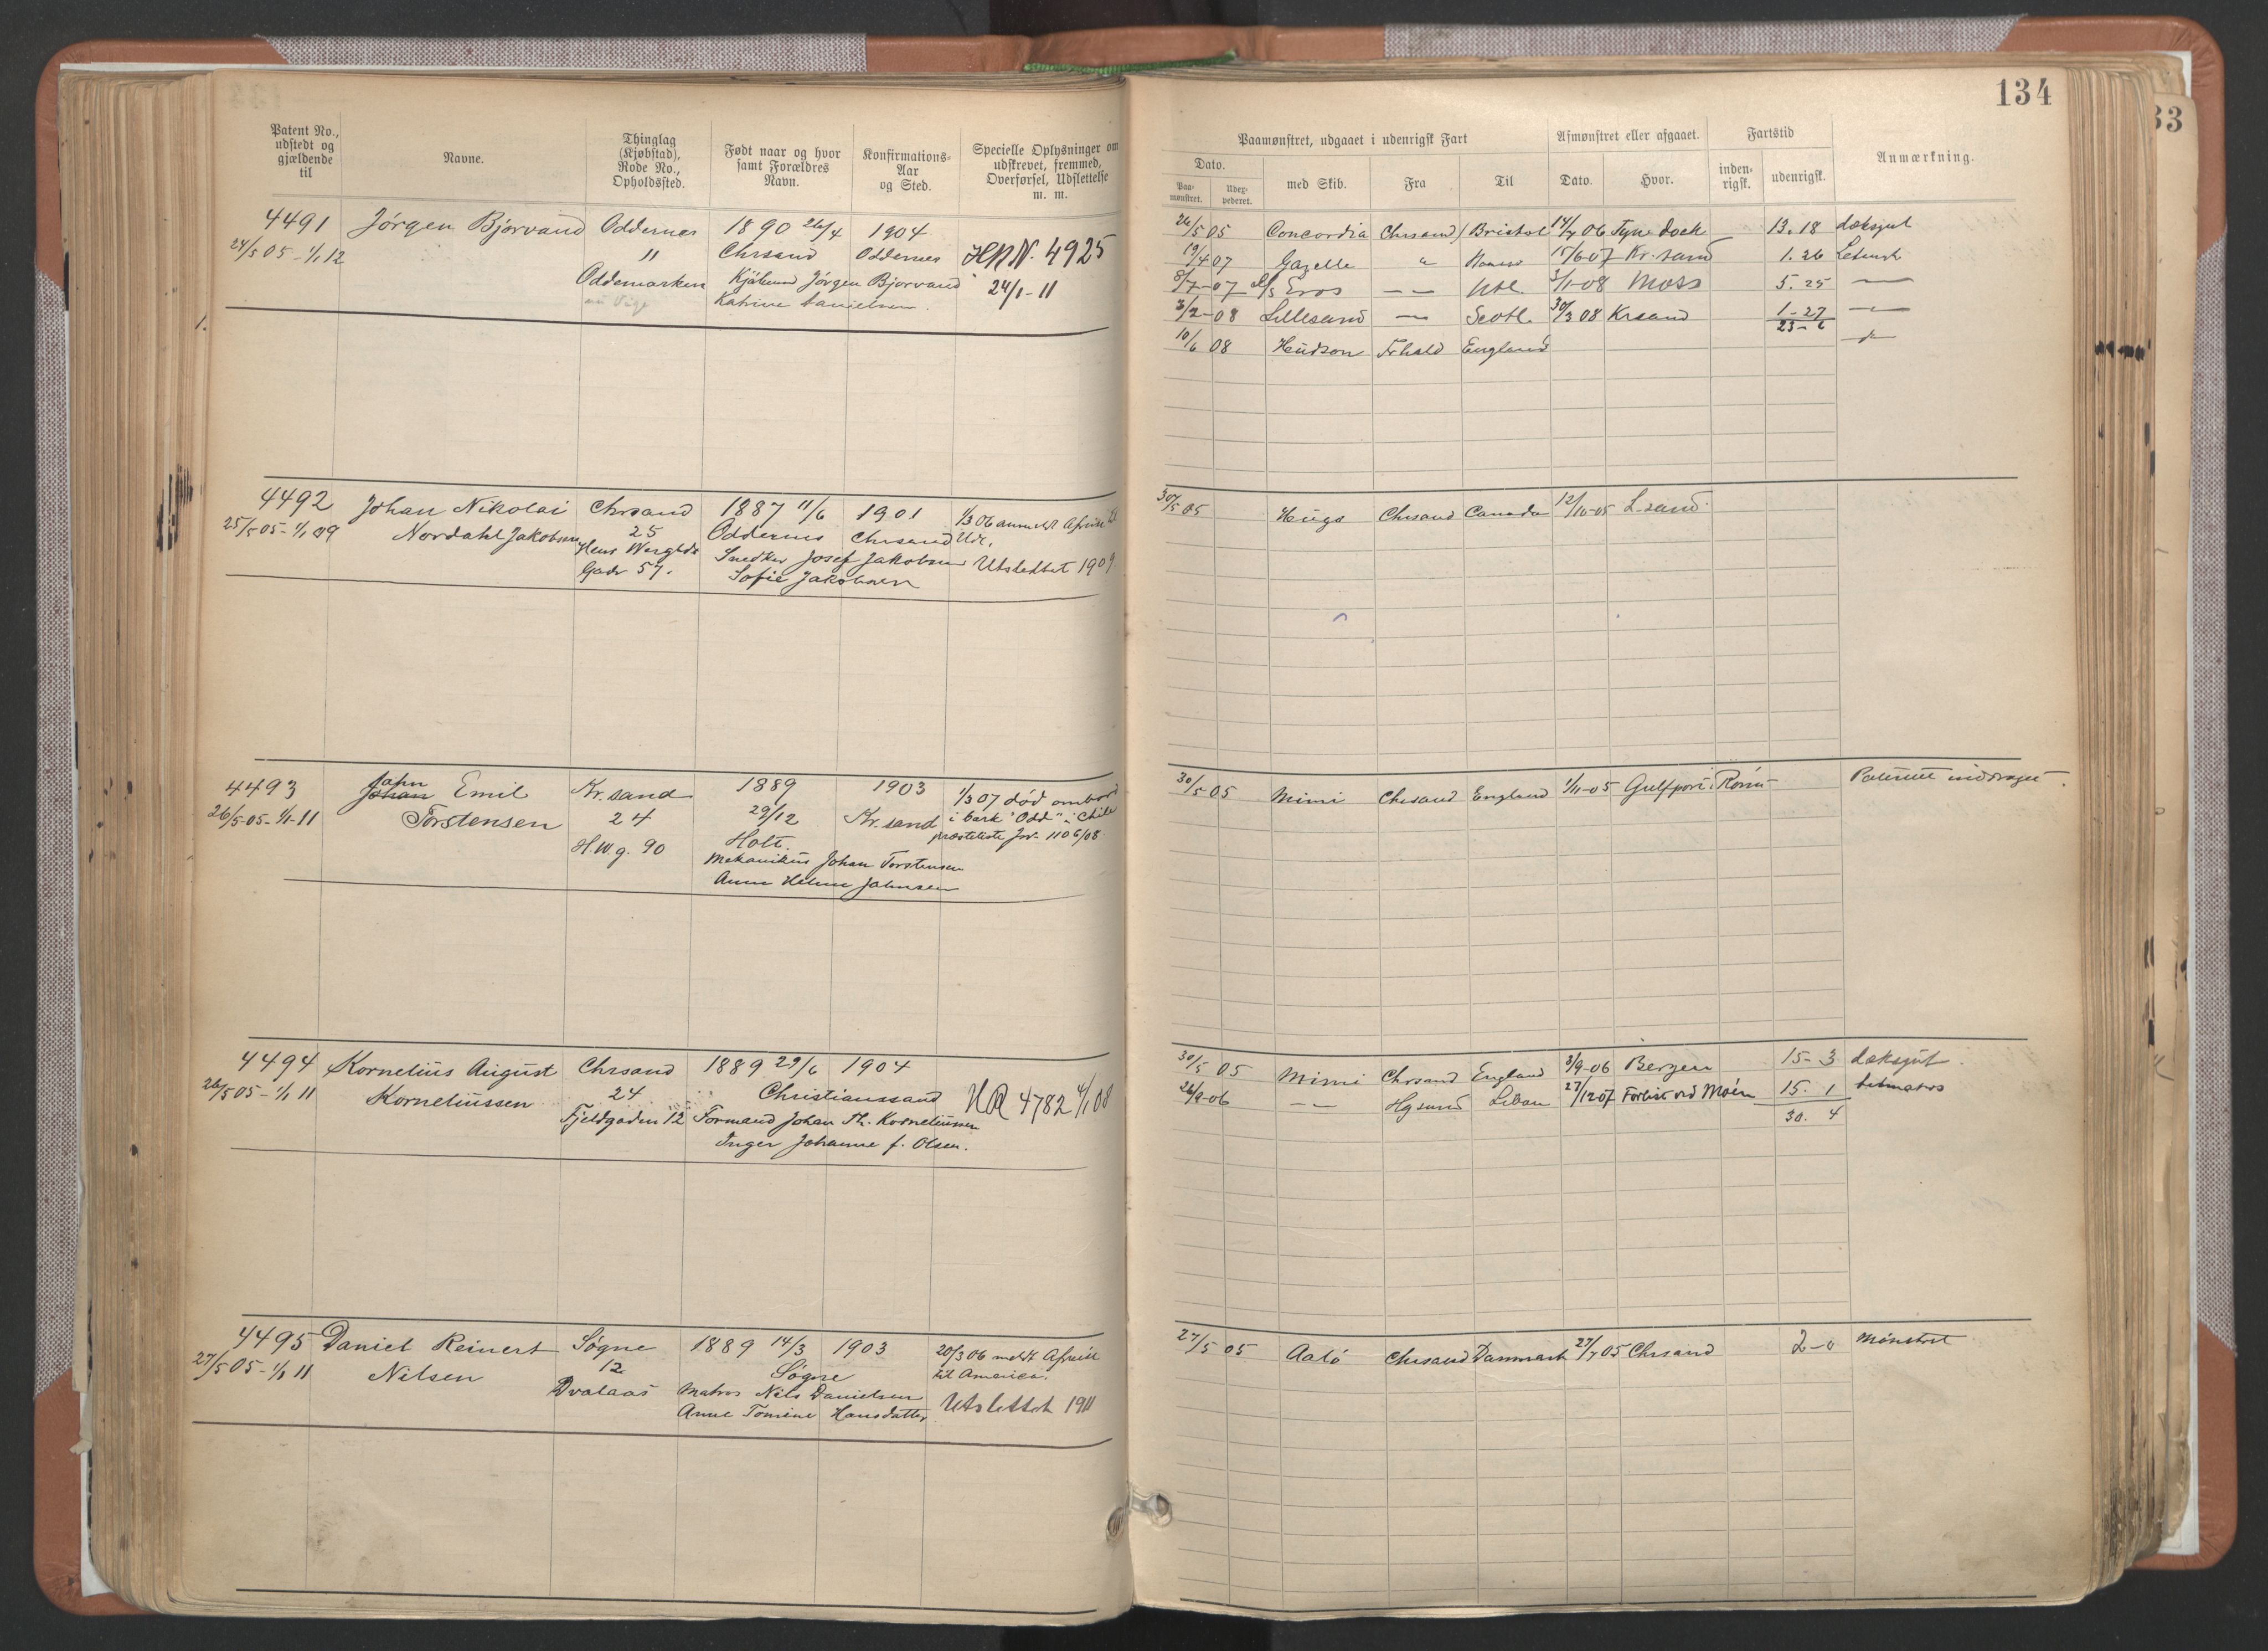 134
33
Patent No., udstedt og gjældende til
Navne.
Thinglag (Kjøbstad), Rode No., Opholdssted.
Født naar og hvor samt Forældres Navn.
Konfirmations-Aar og Sted.
Specielle Oplysninger om udskrevet, fremmed, Overførsel, Udslettelse m. m.
Paamønstret, udgaaet i udenrigsk Fart
Afmønstret eller afgaaet.
Fartstid
Anmærkning.
Dato.
Paa-mønstret.
Udex-pederet.
med Skib.
Fra
Til
Dato.
Hvor.
inden-rigsk.
udenrigsk.
4491 Jørgen Bjorvand Oddernes 1890 26/4 1904
24/5 05 - 1/1 12 " Chrsand Oddernes HRN. 4925
Oddemarken Kjøbmand Jørgen Bjorvand 24/1-11
Katrine Danielsen
26/5 05 Concordia Chrsand Bristol 14/7 06 Tyne dock 13.18 dæksgut
19/4 07 Gazelle " 15/6 07 Kr.sand 1.26 Letmat
8/7-07 D/S Eros — Utl. 3/1-08 Moss 5.25 —
3/2-08 Lillesand — Scotl. 30/3 08 Krsand 1-27 —
23-6
10/6 08 Hudson Frhald England —
4492 Johan Nikolai Chrsand 1887 11/6 1901 1/3 06 anmeldt Afreise til
25/5-05-1/1 09 Nordahl Jakobsen 25 Oddernes Chrsand Udl.
Henr Wergelds Snedker Josef Jakobsen Utslettet 1909
Gade 57. Sofie Jakobsen
30/5 05 Hugo Chrsand Canada 12/10-05 L.sand.
4493 John Johan Emil Kr.sand 1889 1903 1/3 07 død ombord
26/5-05-1/1-11 Torstensen 24 29/12 Kr.sand i bark "Odd" i Chile
H.W.g. 90 Holt. præsteliste Jor. 1106/08
Mekanikus Johan Torstensen
Anne Helene Jahnsen
30/5 05 Mimi Chrsand England 1/11-05 Gulfport Rømt Patentet inddraget.
4494 Kornelius August Chrsand 1889 29/6 1904
26/5 05 - 1/1 11 Korneliussen 24 Christianssand HR 4782 4/1 08
Fjeldgaden 12 Formand Johan Th. Korneliussen
Inger Johanne f. Olsen.
30/5 05 Mimi Chrsand England 3/9-06 Bergen 15-3 dæksgut
26/9-06 — Hgsund Libau 27/12 07 Forlist ved Moén 15.1 letmatros
30.4
4495 Daniel Reinert Søgne 1889 14/3 1903 20/3 06 meldt Afreise
27/5 05-1/1 11 Nilsen 12 Søgne til America.
Dvalaas Matros Nils Danielsen Utslettet 1911
Anne Tomine Hansdatter
27/5 05 Aalø Chrsand Danmark 27/7 05 Chrsand 2-0 Mønstret